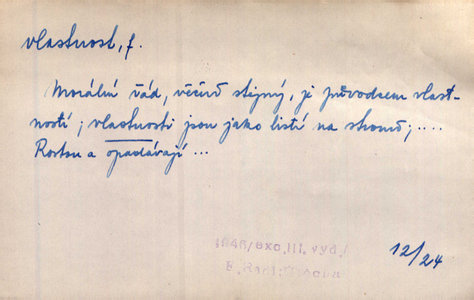 vlastnost, f.
Morální řád, věčně stejný, je původcem vlast-
ností; vlastnosti jsou jako listí na stromě; ....
Rostou a opadávají ...
1946/exc. III. vyd./
E. Rádl: Útěcha
12/24